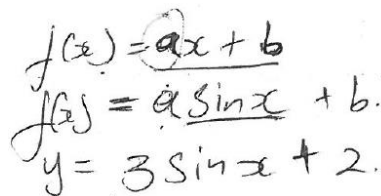 f(x) = ax + b
f(x) = a sinx + b.
y = 3 sinx + 2.